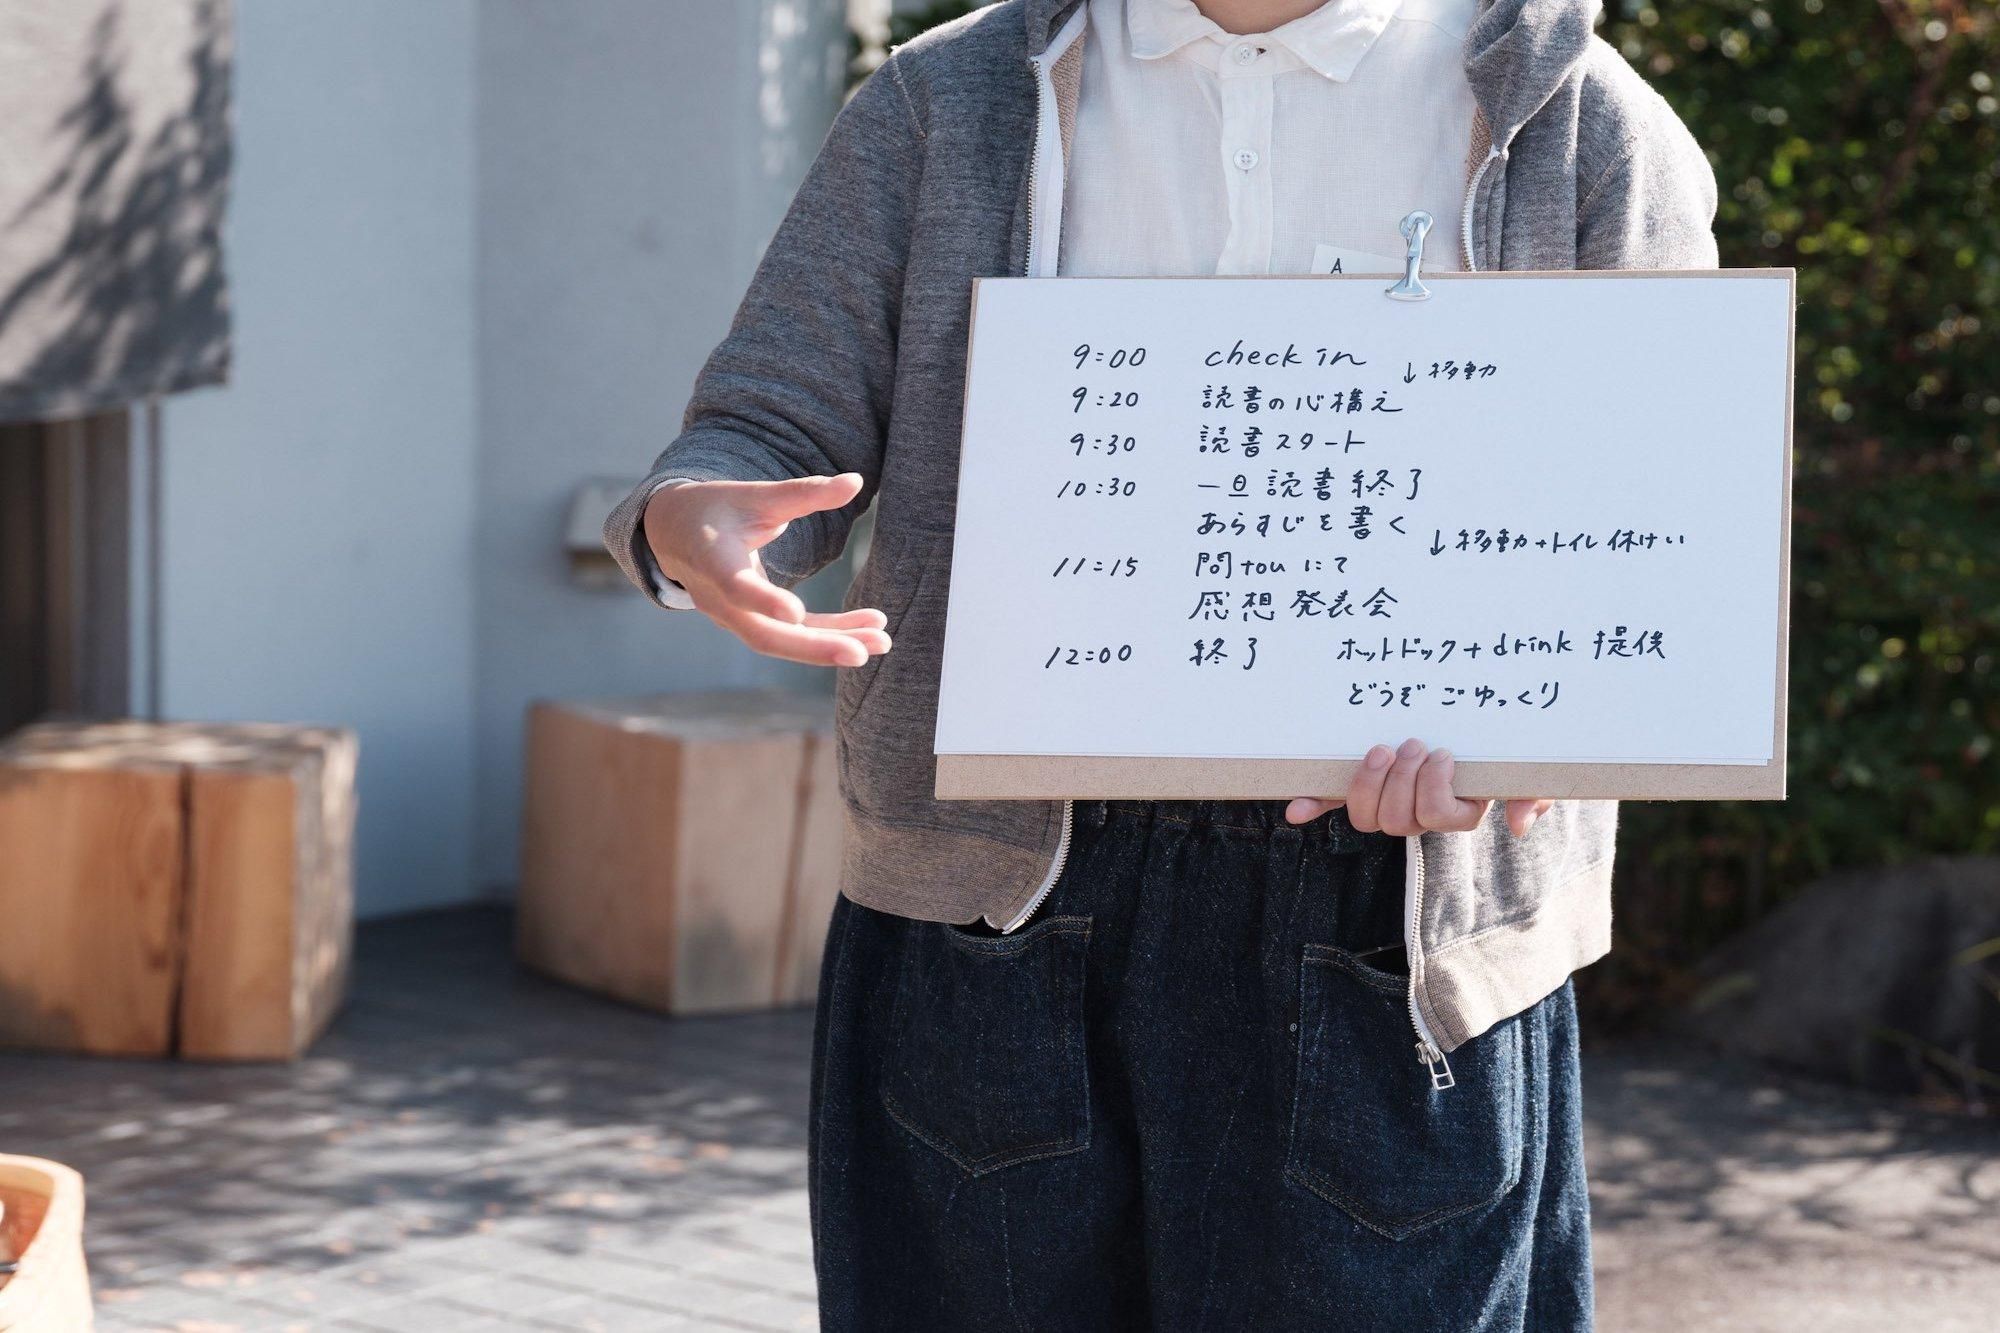 A
9:00 check in ↓移動
9:20 読書の心構え
9:30 読書スタート
10:30 一旦読書終了
あらすじを書く ↓移動+トイレ休けい
11:15 問touにて
感想発表会
12:00 終了 ホットドック+drink提供
どうぞごゆっくり